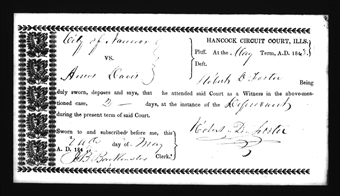 City of Nauvoo
HANCOCK CIRCUIT COURT, ILLS.
Pltff. At the May Term, A.D. 1843.
VS.
Deft.
Amos Davis
Robert D. Foster Being
duly sworn, deposes and says, that he attended said Court as a Witness in the above-men-
tioned case, 2 days, at the instance of the Defendant
during the present term of said Court.
Sworn to and subscribed before me, this
Robert D. Foster
day of May
A. D. 184
J B Backenstos Clerk.